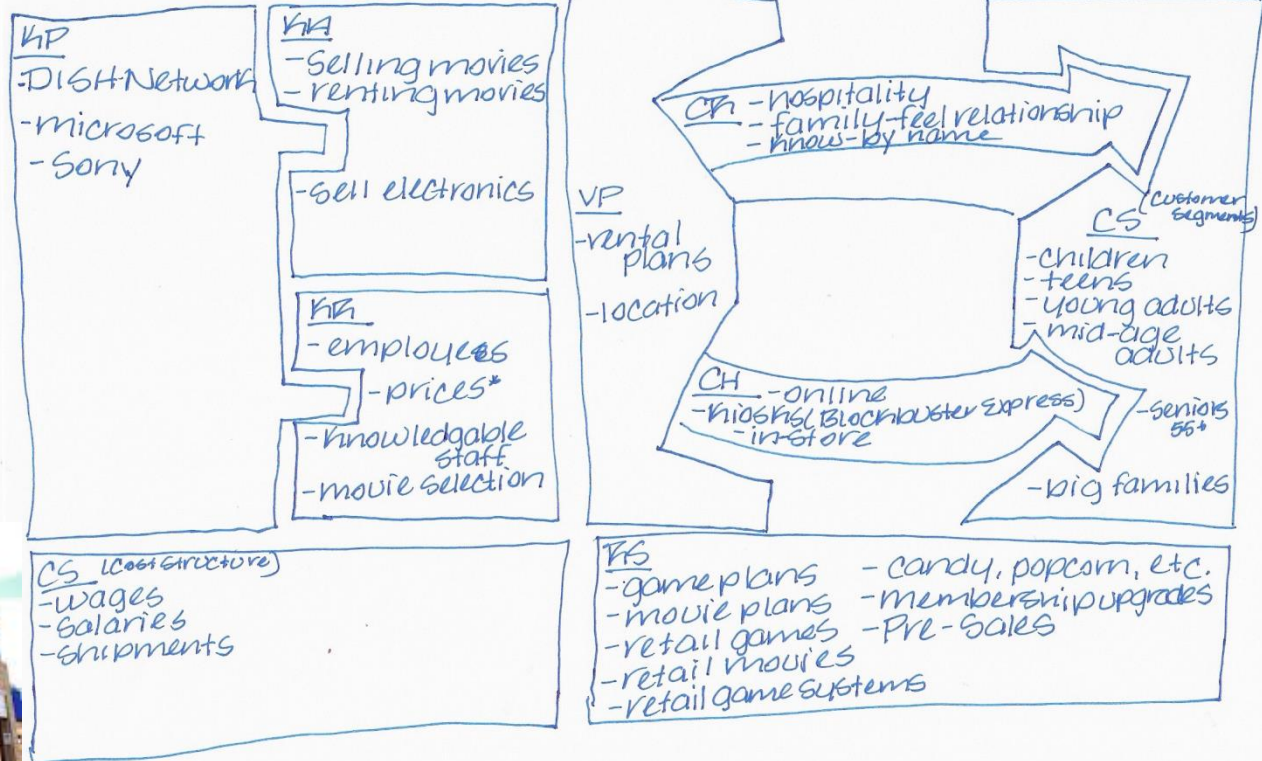 KP
-DISH Network
-microsoft
-Sony
KA
-Selling movies
-renting movies
-sell electronics
KR
-employees
-prices*
-knowledgable
staff
-movie selection
VP
-rental
plans
-location
CR -hospitality
-family-feel relationship
-know-by name
CS (customer
segments)
-children
-teens
-young adults
-mid-age
adults
-seniors
55+
-big families
CH -online
-kiosks (Blockbuster Express)
-in-store
CS (cost structure)
-wages
-salaries
-shipments
RS
-game plans
-movie plans
-retail games
-retail movies
-retail game systems
-candy, popcorn, etc.
-membership upgrades
-Pre-Sales